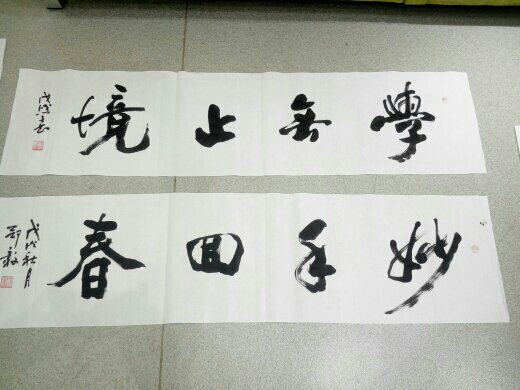 學無止境
戊戌
妙手回春
戊戌秋月